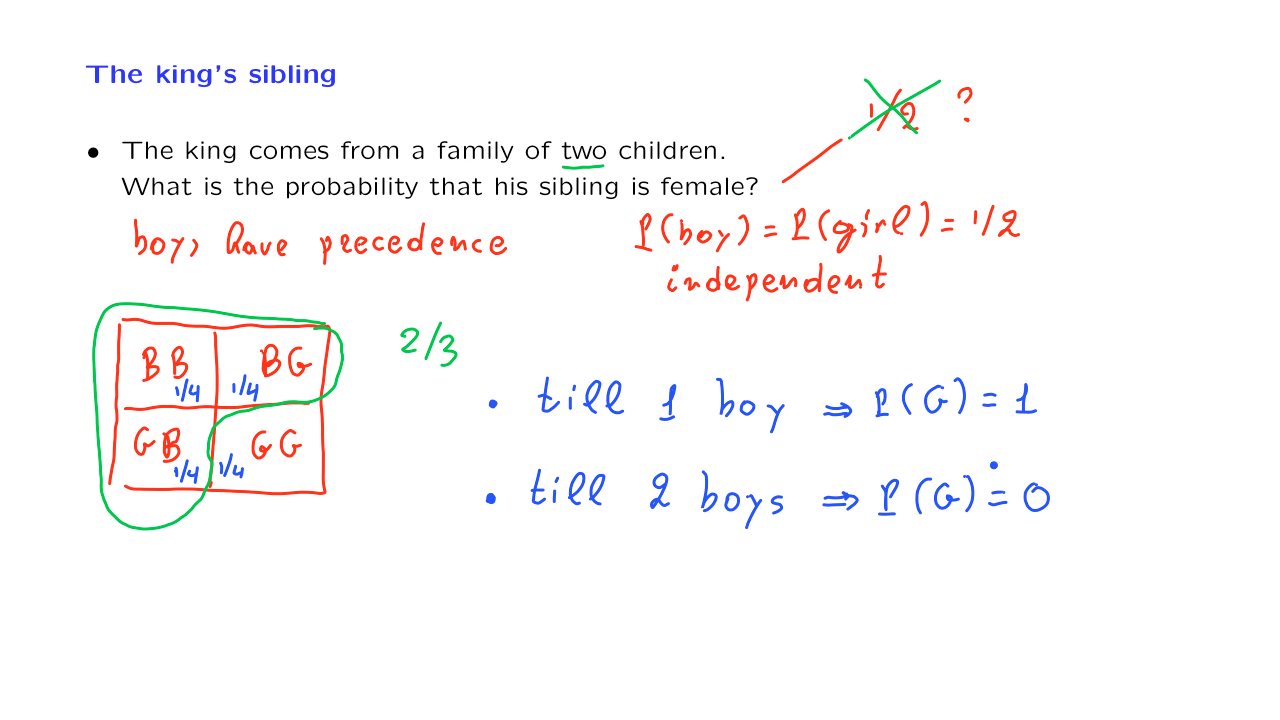 The king's sibling
1/2 ?
• The king comes from a family of two children.
What is the probability that his sibling is female?
boys have precedence
P(boy) = P(girl) = 1/2
independent
BB 1/4 BG 1/4
GB 1/4 GG 1/4
2/3
• till 1 boy ⇒ P(G) = 1
• till 2 boys ⇒ P(G) = 0